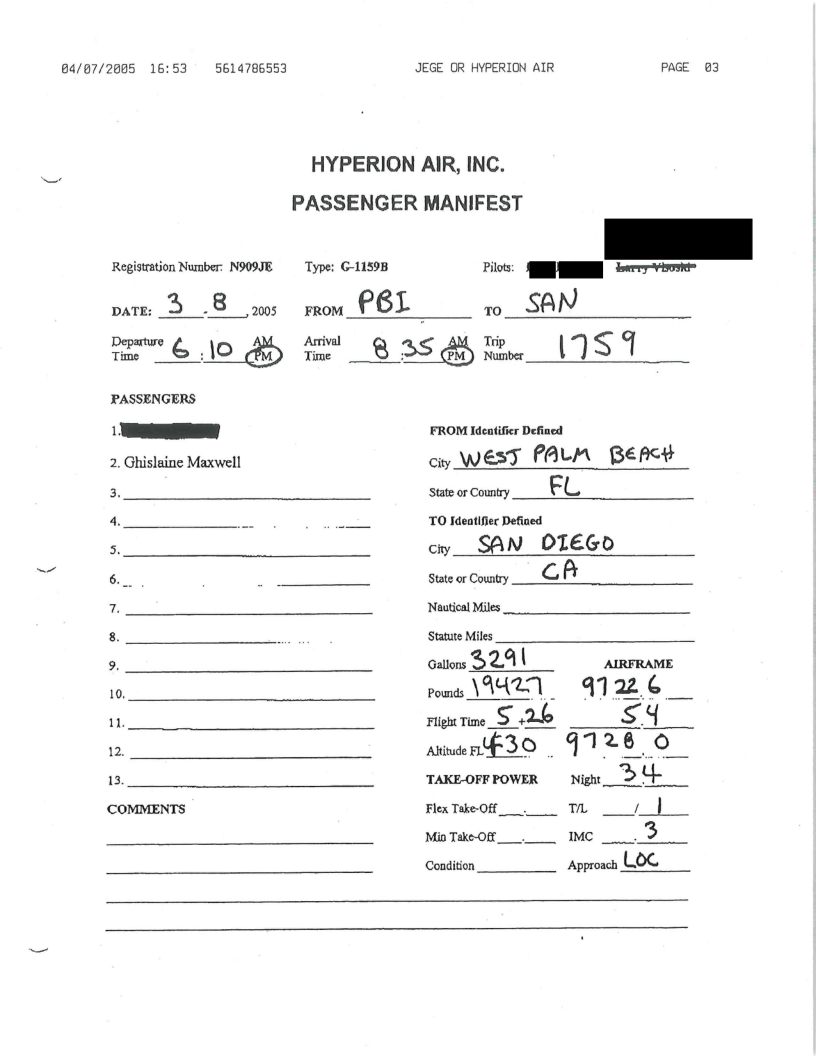 04/07/2005 16:53 5614786553 JEGE OR HYPERION AIR PAGE 03
HYPERION AIR, INC.
PASSENGER MANIFEST
Registration Number: N909JE Type: G-1159B Pilots: Larry Visoski
DATE: 3 . 8 , 2005 FROM PBI TO SAN
Departure Time 6 : 10 AM PM Arrival Time 8 : 35 AM PM Trip Number 1759
PASSENGERS
1.
FROM Identifier Defined
2. Ghislaine Maxwell
City WEST PALM BEACH
3.
State or Country FL
4.
TO Identifier Defined
5.
City SAN DIEGO
6.
State or Country CA
7.
Nautical Miles
8.
Statute Miles
9.
Gallons 3291 AIRFRAME
10.
Pounds 19427 9722 6
11.
Flight Time 5 + 26 5.4
12.
Altitude FL 430 9728 0
13.
TAKE-OFF POWER Night 3 4
COMMENTS
Flex Take-Off . T/L / 1
Min Take-Off . IMC . 3
Condition Approach LOC